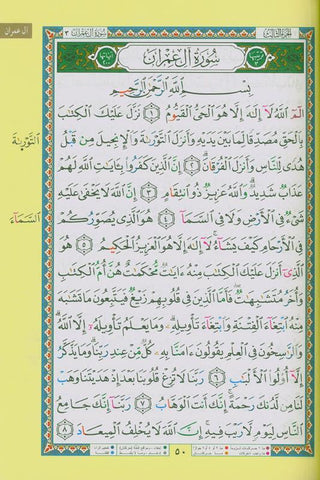 آل عمران
الجزء الثالث
سُورَةُ آلِ عِمْرَانَ ٣
سُورَةُ آلِ عِمْرَانَ
بِسْمِ اللَّهِ الرَّحْمَٰنِ الرَّحِيمِ
الٓمٓ اللَّهُ لَآ إِلَٰهَ إِلَّا هُوَ الْحَيُّ الْقَيُّومُ ﴿١﴾ نَزَّلَ عَلَيْكَ الْكِتَٰبَ
بِالْحَقِّ مُصَدِّقًا لِّمَا بَيْنَ يَدَيْهِ وَأَنزَلَ التَّوْرَىٰةَ وَالْإِنجِيلَ مِن قَبْلُ
هُدًى لِّلنَّاسِ وَأَنزَلَ الْفُرْقَانَ ﴿٢﴾ إِنَّ الَّذِينَ كَفَرُوا بِـَٔايَٰتِ اللَّهِ لَهُمْ
عَذَابٌ شَدِيدٌ وَاللَّهُ عَزِيزٌ ذُو انتِقَامٍ ﴿٣﴾ إِنَّ اللَّهَ لَا يَخْفَىٰ عَلَيْهِ
شَىْءٌ فِي الْأَرْضِ وَلَا فِي السَّمَآءِ ﴿٤﴾ هُوَ الَّذِي يُصَوِّرُكُمْ
فِي الْأَرْحَامِ كَيْفَ يَشَآءُ لَآ إِلَٰهَ إِلَّا هُوَ الْعَزِيزُ الْحَكِيمُ ﴿٥﴾
هُوَ الَّذِيٓ أَنزَلَ عَلَيْكَ الْكِتَٰبَ مِنْهُ ءَايَٰتٌ مُّحْكَمَٰتٌ هُنَّ أُمُّ الْكِتَٰبِ
وَأُخَرُ مُتَشَٰبِهَٰتٌ فَأَمَّا الَّذِينَ فِي قُلُوبِهِمْ زَيْغٌ فَيَتَّبِعُونَ مَا تَشَٰبَهَ
مِنْهُ ابْتِغَآءَ الْفِتْنَةِ وَابْتِغَآءَ تَأْوِيلِهِ وَمَا يَعْلَمُ تَأْوِيلَهُٓ إِلَّا اللَّهُ
وَالرَّٰسِخُونَ فِي الْعِلْمِ يَقُولُونَ ءَامَنَّا بِهِ كُلٌّ مِّنْ عِندِ رَبِّنَا وَمَا يَذَّكَّرُ
إِلَّآ أُولُوا الْأَلْبَٰبِ ﴿٦﴾ رَبَّنَا لَا تُزِغْ قُلُوبَنَا بَعْدَ إِذْ هَدَيْتَنَا وَهَبْ
لَنَا مِن لَّدُنكَ رَحْمَةً إِنَّكَ أَنتَ الْوَهَّابُ ﴿٧﴾ رَبَّنَآ إِنَّكَ جَامِعُ
النَّاسِ لِيَوْمٍ لَّا رَيْبَ فِيهِ إِنَّ اللَّهَ لَا يُخْلِفُ الْمِيعَادَ ﴿٨﴾
التَّوْرَىٰةَ
السَّمَآءِ
٥٠